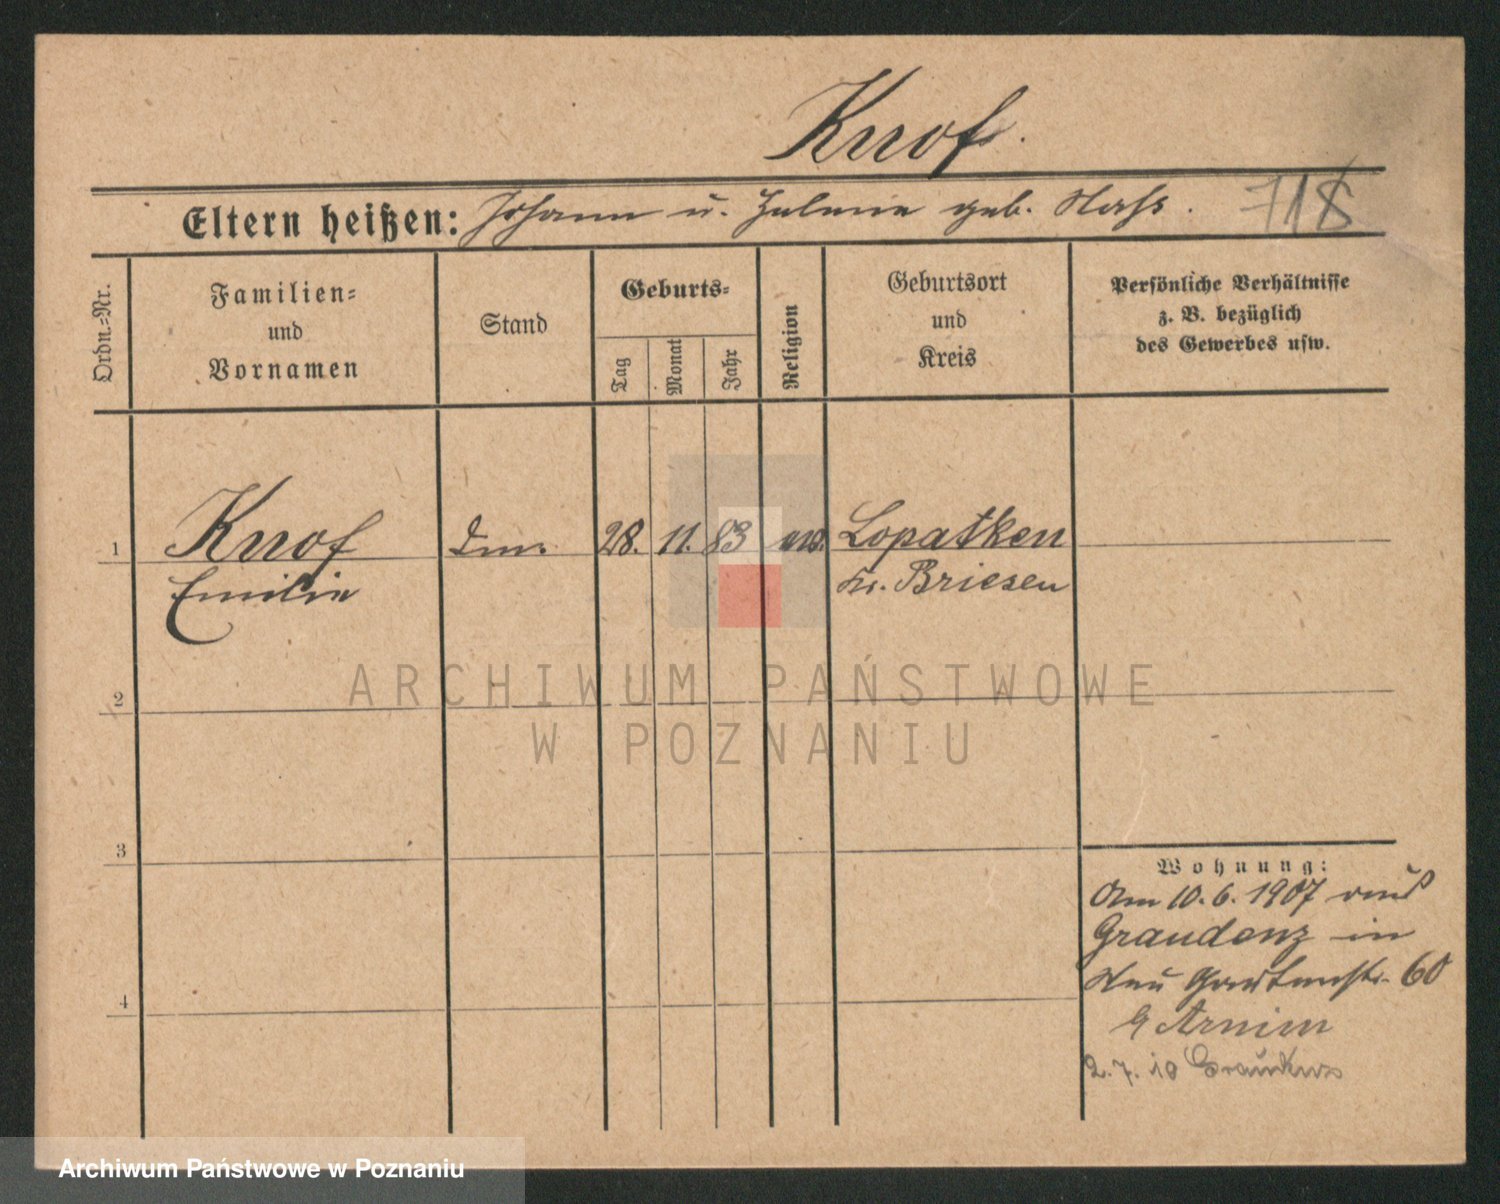 Knof.
Eltern heißen: Johann u. Zulma geb. Haß. 718
Ordn.=Nr.
Familien=
und
Vornamen
Stand
Geburts=
Tag
Monat
Jahr
Religion
Geburtsort
und
Kreis
Persönliche Verhältnisse
z. B. bezüglich
des Gewerbes usw.
1 Knof 28. 11. 83 ev. Lopatken
Emilie Kr. Briesen
2
3
4
Wohnung:
Am 10. 6. 1907 aus
Graudenz in
Neu Gartenstr. 60
b Arnim
2. 7. 10
ARCHIWUM PAŃSTWOWE
W POZNANIU
Archiwum Państwowe w Poznaniu